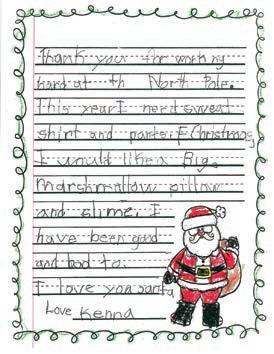 Thank you for working
hard at th North Pole.
This year I need sweat
shirt and pants. F Christmas
I would like a Big
marshmallow pillow
and slime. I
have been good
and bad to.
I love you santa
Love Kenna